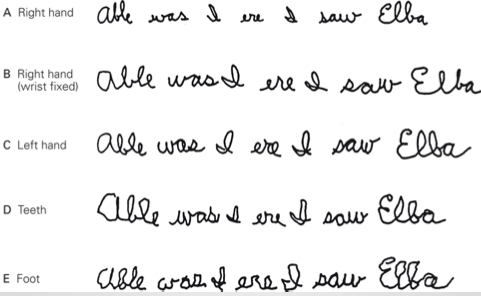 A Right hand able was I ere I saw Elba
B Right hand (wrist fixed) able was I ere I saw Elba
C Left hand able was I ere I saw Elba
D Teeth able was I ere I saw Elba
E Foot able was I ere I saw Elba